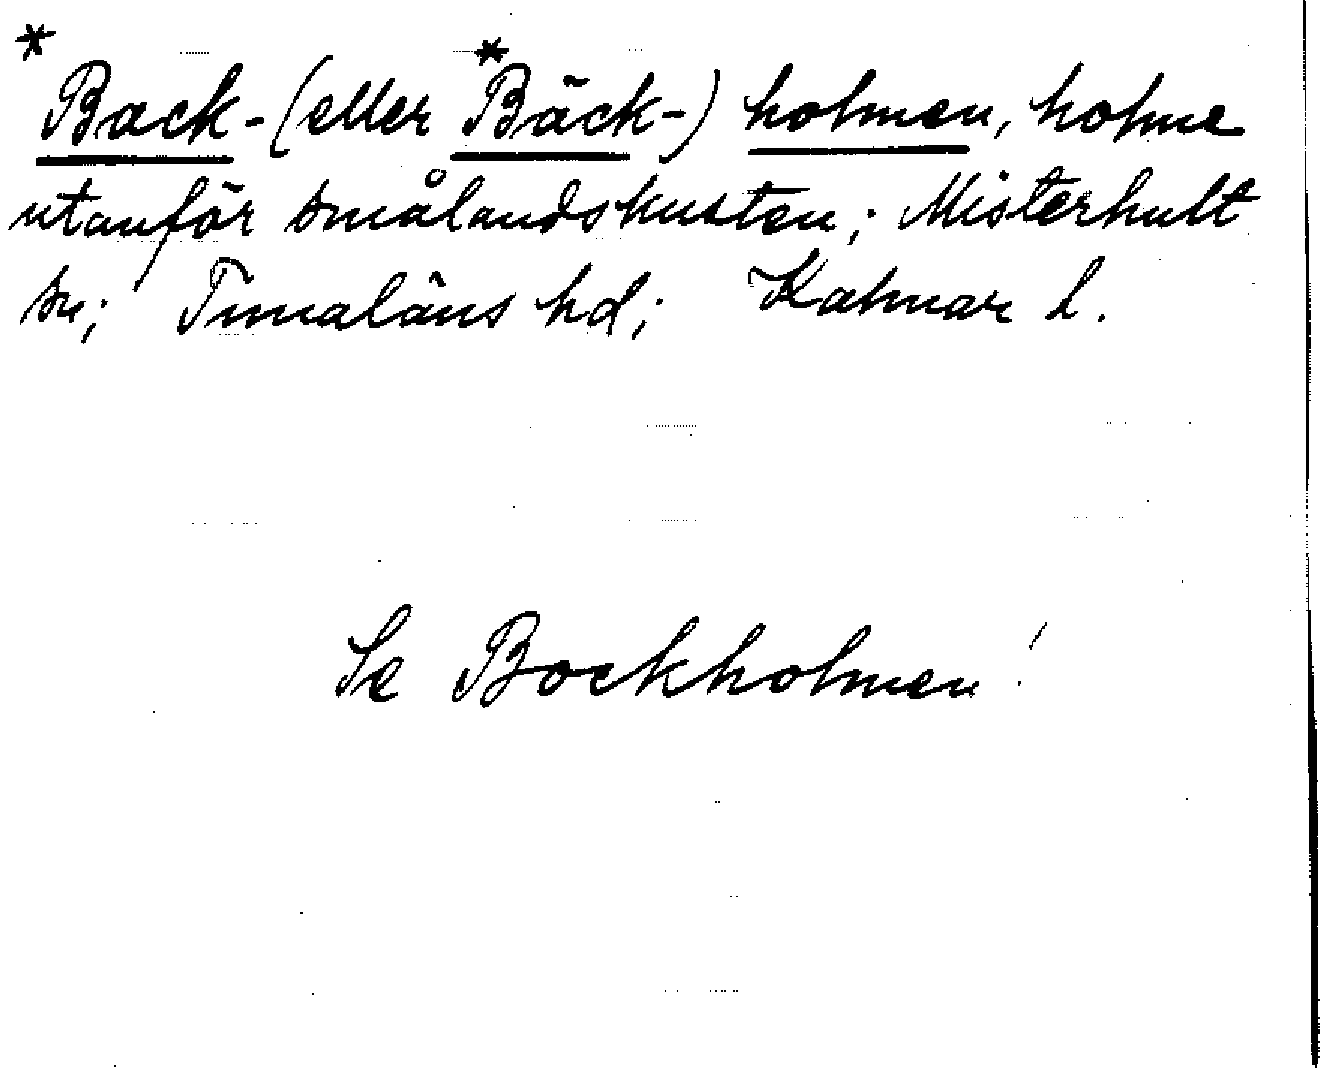 *Back- (eller *Bäck-) holmen, holme
utanför smålandskusten; Misterhult
sn; Tunaläns hd; Kalmar l.
Se Bockholmen!